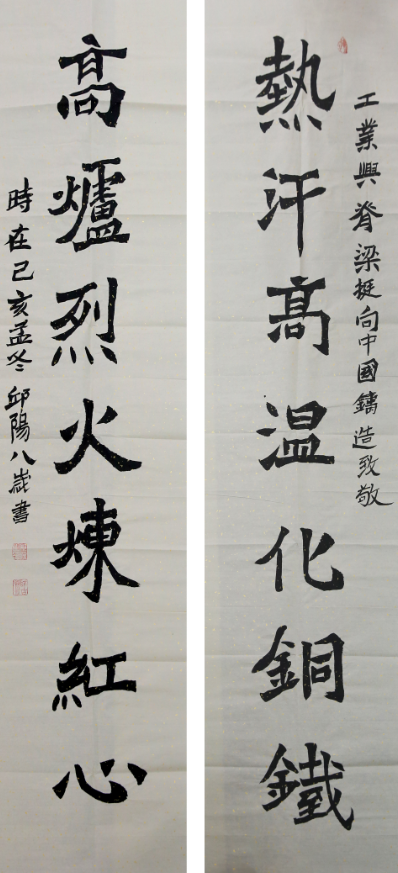 工業興脊梁挺向中國鑄造致敬
熱汗高温化銅鐵
高爐烈火煉紅心
時在己亥孟冬邱陽八歲書